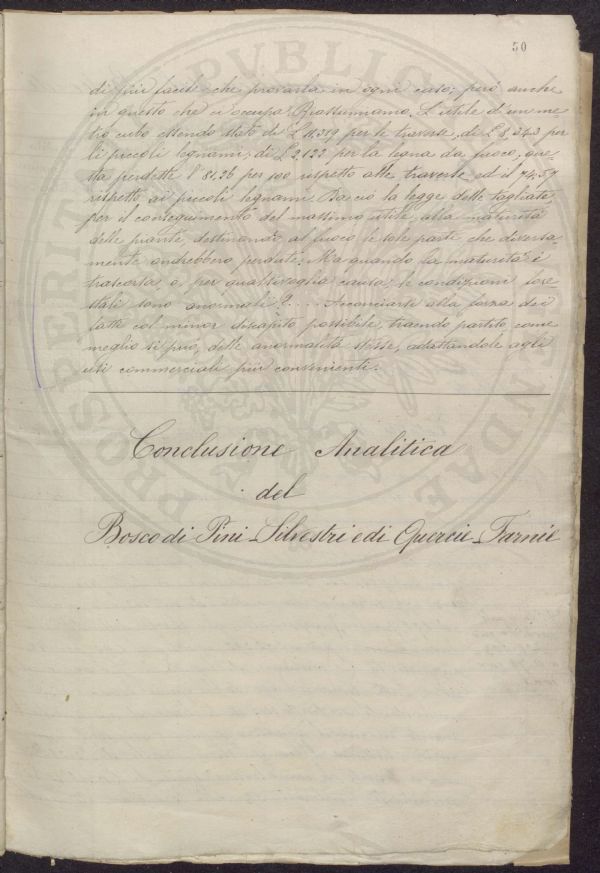 50
di più facile che provarla in ogni caso; però anche
in questo che ci occupa. Riassumiamo. L'utile d'un me-
tro cubo essendo stato di £ 11,319 per le traverse, di £ 8,343 per
li piccoli legnami, di £ 2,122 per la legna da fuoco, que-
sta perdette l'81,26 per 100 rispetto alle traverse ed il 74,57
rispetto ai piccoli legnami. Da ciò la legge delle tagliate,
per il conseguimento del massimo utile, alla maturità
delle piante, destinando al fuoco le sole parti che diversa-
mente andrebbero perdute. Ma quando la maturità è
trascorsa, o per qualsivoglia causa, le condizioni fore-
stali sono anormali? .... Acconciarsi alla forza dei
fatti col minor discapito possibile, traendo partito, come
meglio si può, delle anormalità stesse, adattandole agli
usi commerciali più convenienti.
Conclusione Analitica
del
Bosco di Pini-Silvestri e di Quercie-Farnie
PVBLIC
PROSPERITA
ENDAE